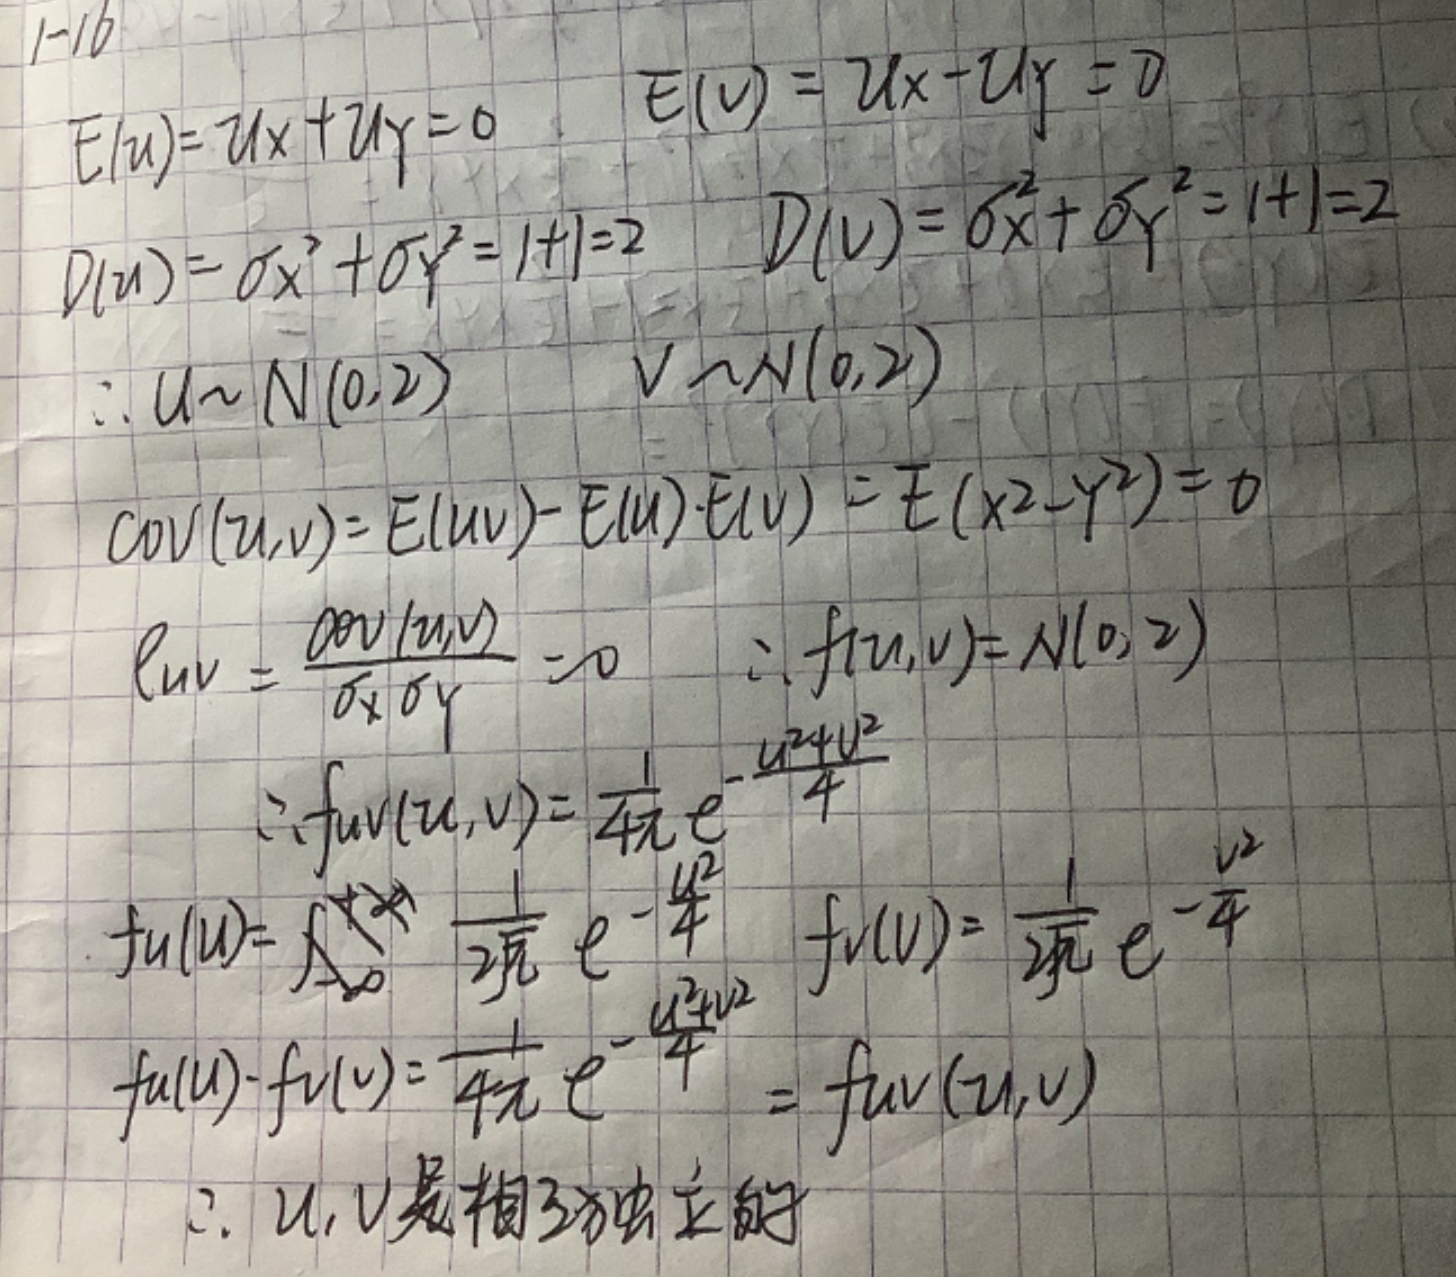 1-16
E(u)=ux+uy=0 E(v)=ux-uy=0
D(u)=σx²+σy²=1+1=2 D(v)=σx²+σy²=1+1=2
∴u~N(0,2) v~N(0,2)
cov(u,v)=E(uv)-E(u)·E(v)=E(x2-y²)=0
ρuv=cov(u,v)/σxσy=0 ∴f(u,v)=N(0,2)
∴fuv(u,v)=1/4π e^-(u²+v²)/4
fu(u)= 1/2√π e^-u²/4 fv(v)=1/2√π e^-v²/4
fu(u)·fv(v)=1/4π e^-(u²+v²)/4 =fuv(u,v)
∴u,v是相互独立的